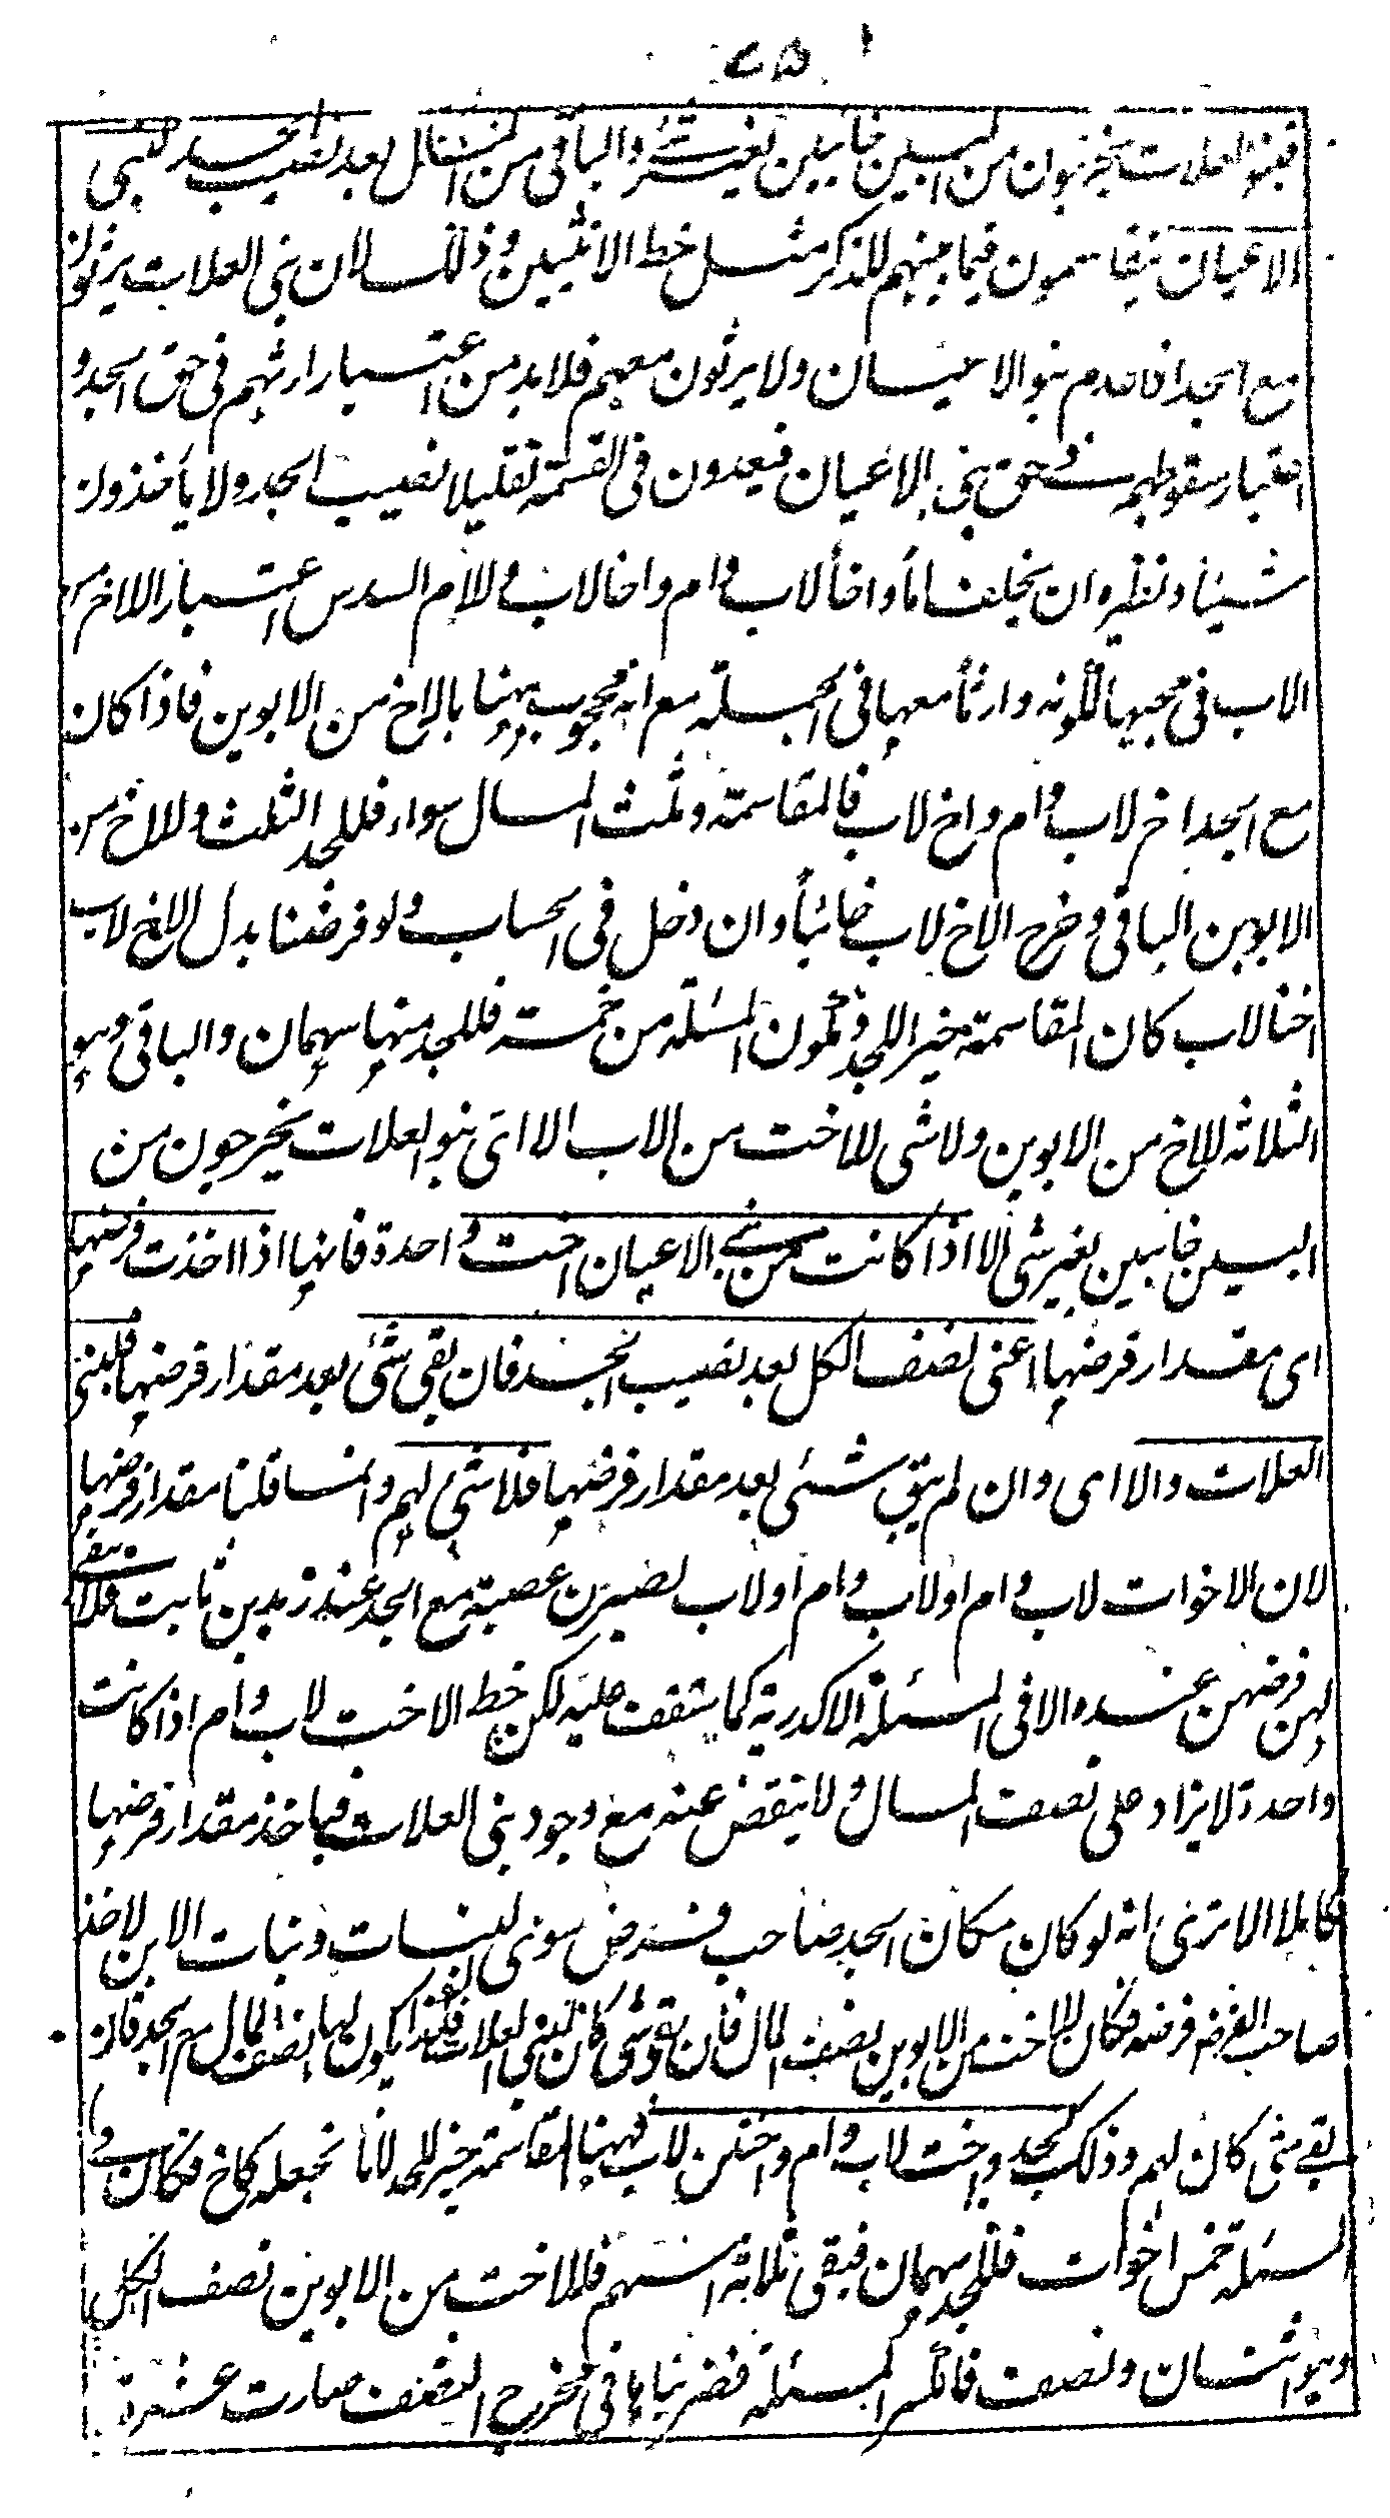 ٧٥
فبنو العلات يخرجون من البين خائبين بغير شئ والباقي من المال بعد نصيب الجد لبني
الاعيان يتقاسمون فيما بينهم للذكر مثل حظ الانثيين وذلك لان بني العلات يرثون
مع الجد اذا عدم بنو الاعيان ولا يرثون معهم فلا بد من اعتبار ارثهم في حق الجد و
اعتبار سقوطهم في حق بني الاعيان فيعدون في القسمة تقليلا لنصيب الجد ولا يأخذون
شيئا ونظيره ان يخلف اما واخا لاب وام واخا لاب وللام السدس اعتبارا للاخ من
الاب في حجبها لكونه وارثا معها في الجملة مع انه محجوب ههنا بالاخ من الابوين فاذا كان
مع الجد اخ لاب وام واخ لاب فالمقاسمة وثلث المال سواء فللجد الثلث وللاخ من
الابوين الباقي وخرج الاخ لاب خائبا وان دخل في الحساب ولو فرضنا بدل الاخ لاب
اختا لاب كان المقاسمة خيرا للجد وتكون المسئلة من خمسة فللجد منها سهمان والباقي وهو
الثلاثة للاخ من الابوين ولا شئ للاخت من الاب الا اي بنو العلات يخرجون من
البين خائبين بغير شئ الا اذا كانت من بني الاعيان اخت واحدة فانها اذا اخذت فرضها
اي مقدار فرضها اعني نصف الكل بعد نصيب الجد فان بقي شئ بعد مقدار فرضها فلبني
العلات والا اي وان لم يبق شئ بعد مقدار فرضها فلا شئ لهم وانما قلنا مقدار فرضها
لان الاخوات لاب وام او لاب وام او لاب تصيرن عصبة مع الجد عند زيد بن ثابت فلا يبقى
لهن فرضهن عنده الا في المسئلة الاكدرية كما ستقف عليه لكن حظ الاخت لاب وام اذا كانت
واحدة لا يزاد على نصف المال ولا ينقض عنه مع وجود بني العلات فياخذ مقدار فرضها
كاملا الا ترى انه لو كان مكان الجد صاحب فرض سوى البنات وبنات الابن لاخذ
صاحب الفرض فرضه فكان للاخت من الابوين نصف المال فان بقي شئ كان لبني العلات فكذا يكون لها النصف المال مع الجد فان
بقي شئ كان لهم وذلك كجد واخت لاب وام واختين لاب فههنا المقاسمة خير للجد لانا نجعله كاخ فكان في
المسئلة خمس اخوات فللجد سهمان فبقي ثلاثة اسهم فللاخت من الابوين نصف الكل
وهو اثنان ونصف فانكسر المسئلة فضربناها في مخرج النصف صارت عشرة